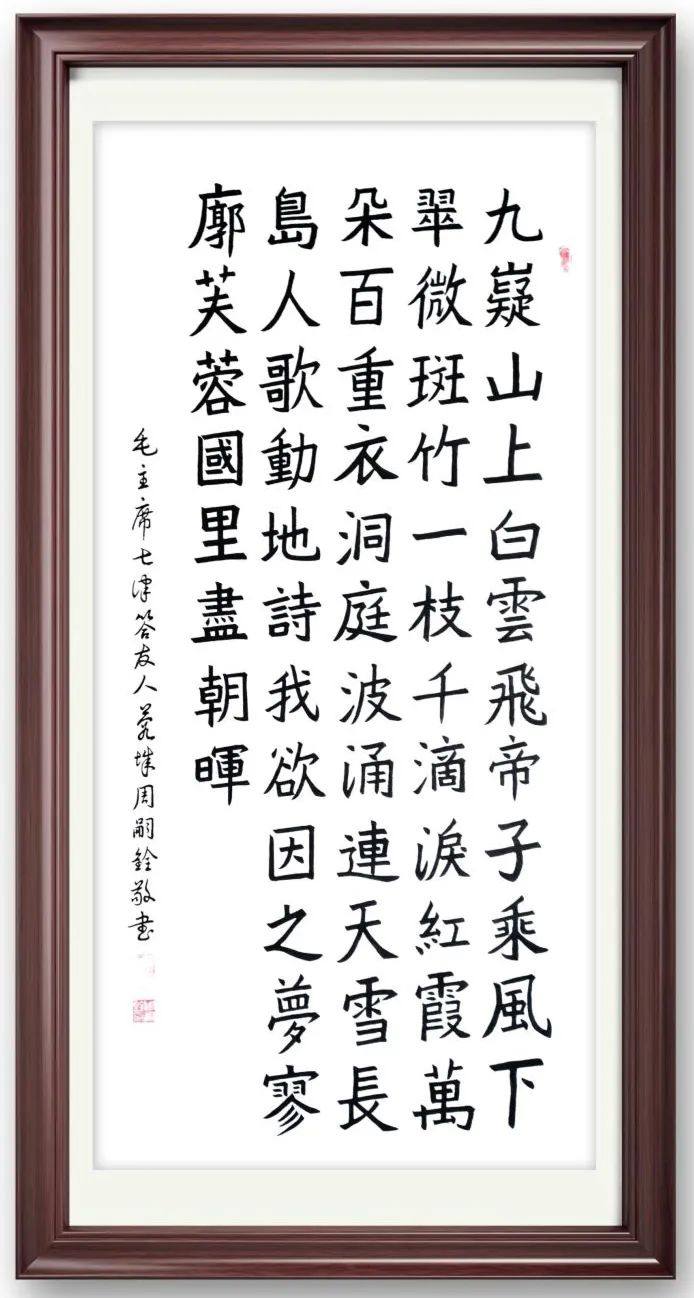 九嶷山上白雲飛帝子乘風下
翠微斑竹一枝千滴淚紅霞萬
朵百重衣洞庭波涌連天雪長
島人歌動地詩我欲因之夢寥
廓芙蓉國里盡朝暉
毛主席七律答友人 周嗣銓敬书